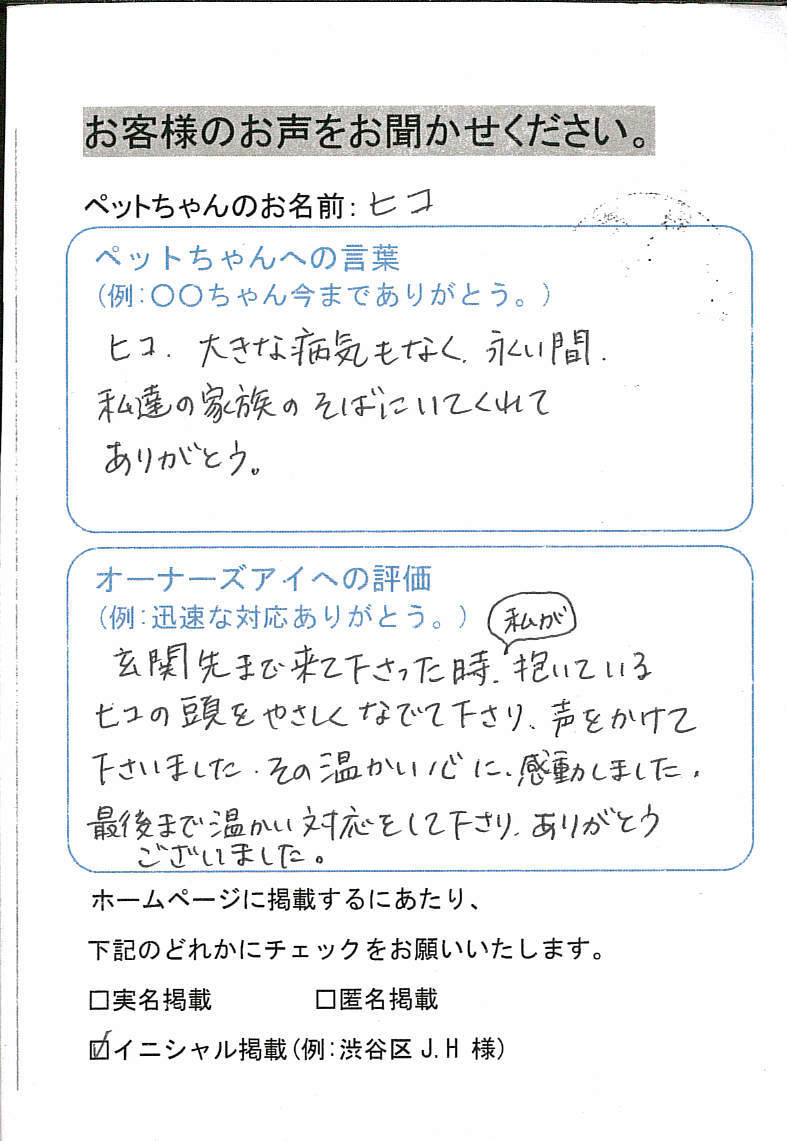 お客様のお声をお聞かせください。
ペットちゃんのお名前：ヒコ
ペットちゃんへの言葉
（例：〇〇ちゃん今までありがとう。）
ヒコ、大きな病気もなく、永い間、
私達の家族のそばにいてくれて
ありがとう。
オーナーズアイへの評価
（例：迅速な対応ありがとう。）
私が
玄関先まで来て下さった時、抱いている
ヒコの頭をやさしくなでて下さり、声をかけて
下さいました。その温かい心に、感動しました。
最後まで温かい対応をして下さり、ありがとう
ございました。
ホームページに掲載するにあたり、
下記のどれかにチェックをお願いいたします。
□実名掲載 □匿名掲載
☑イニシャル掲載（例：渋谷区 J.H 様）